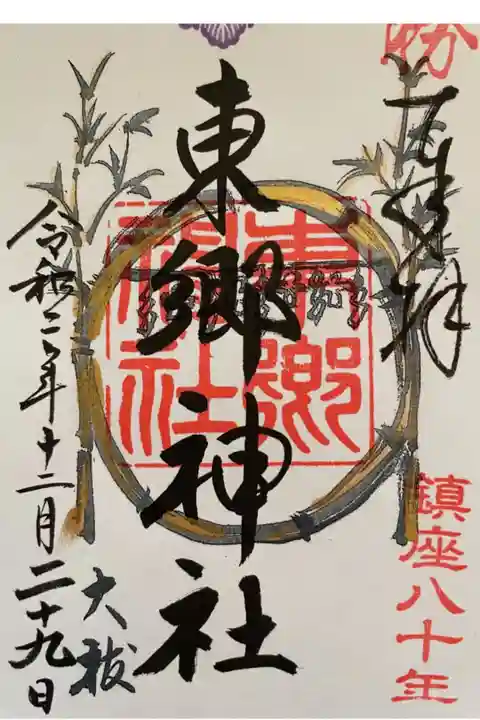 勝
奉拝
鎮座八十年
東郷神社
東郷神社
大祓
令和二年十二月二十九日